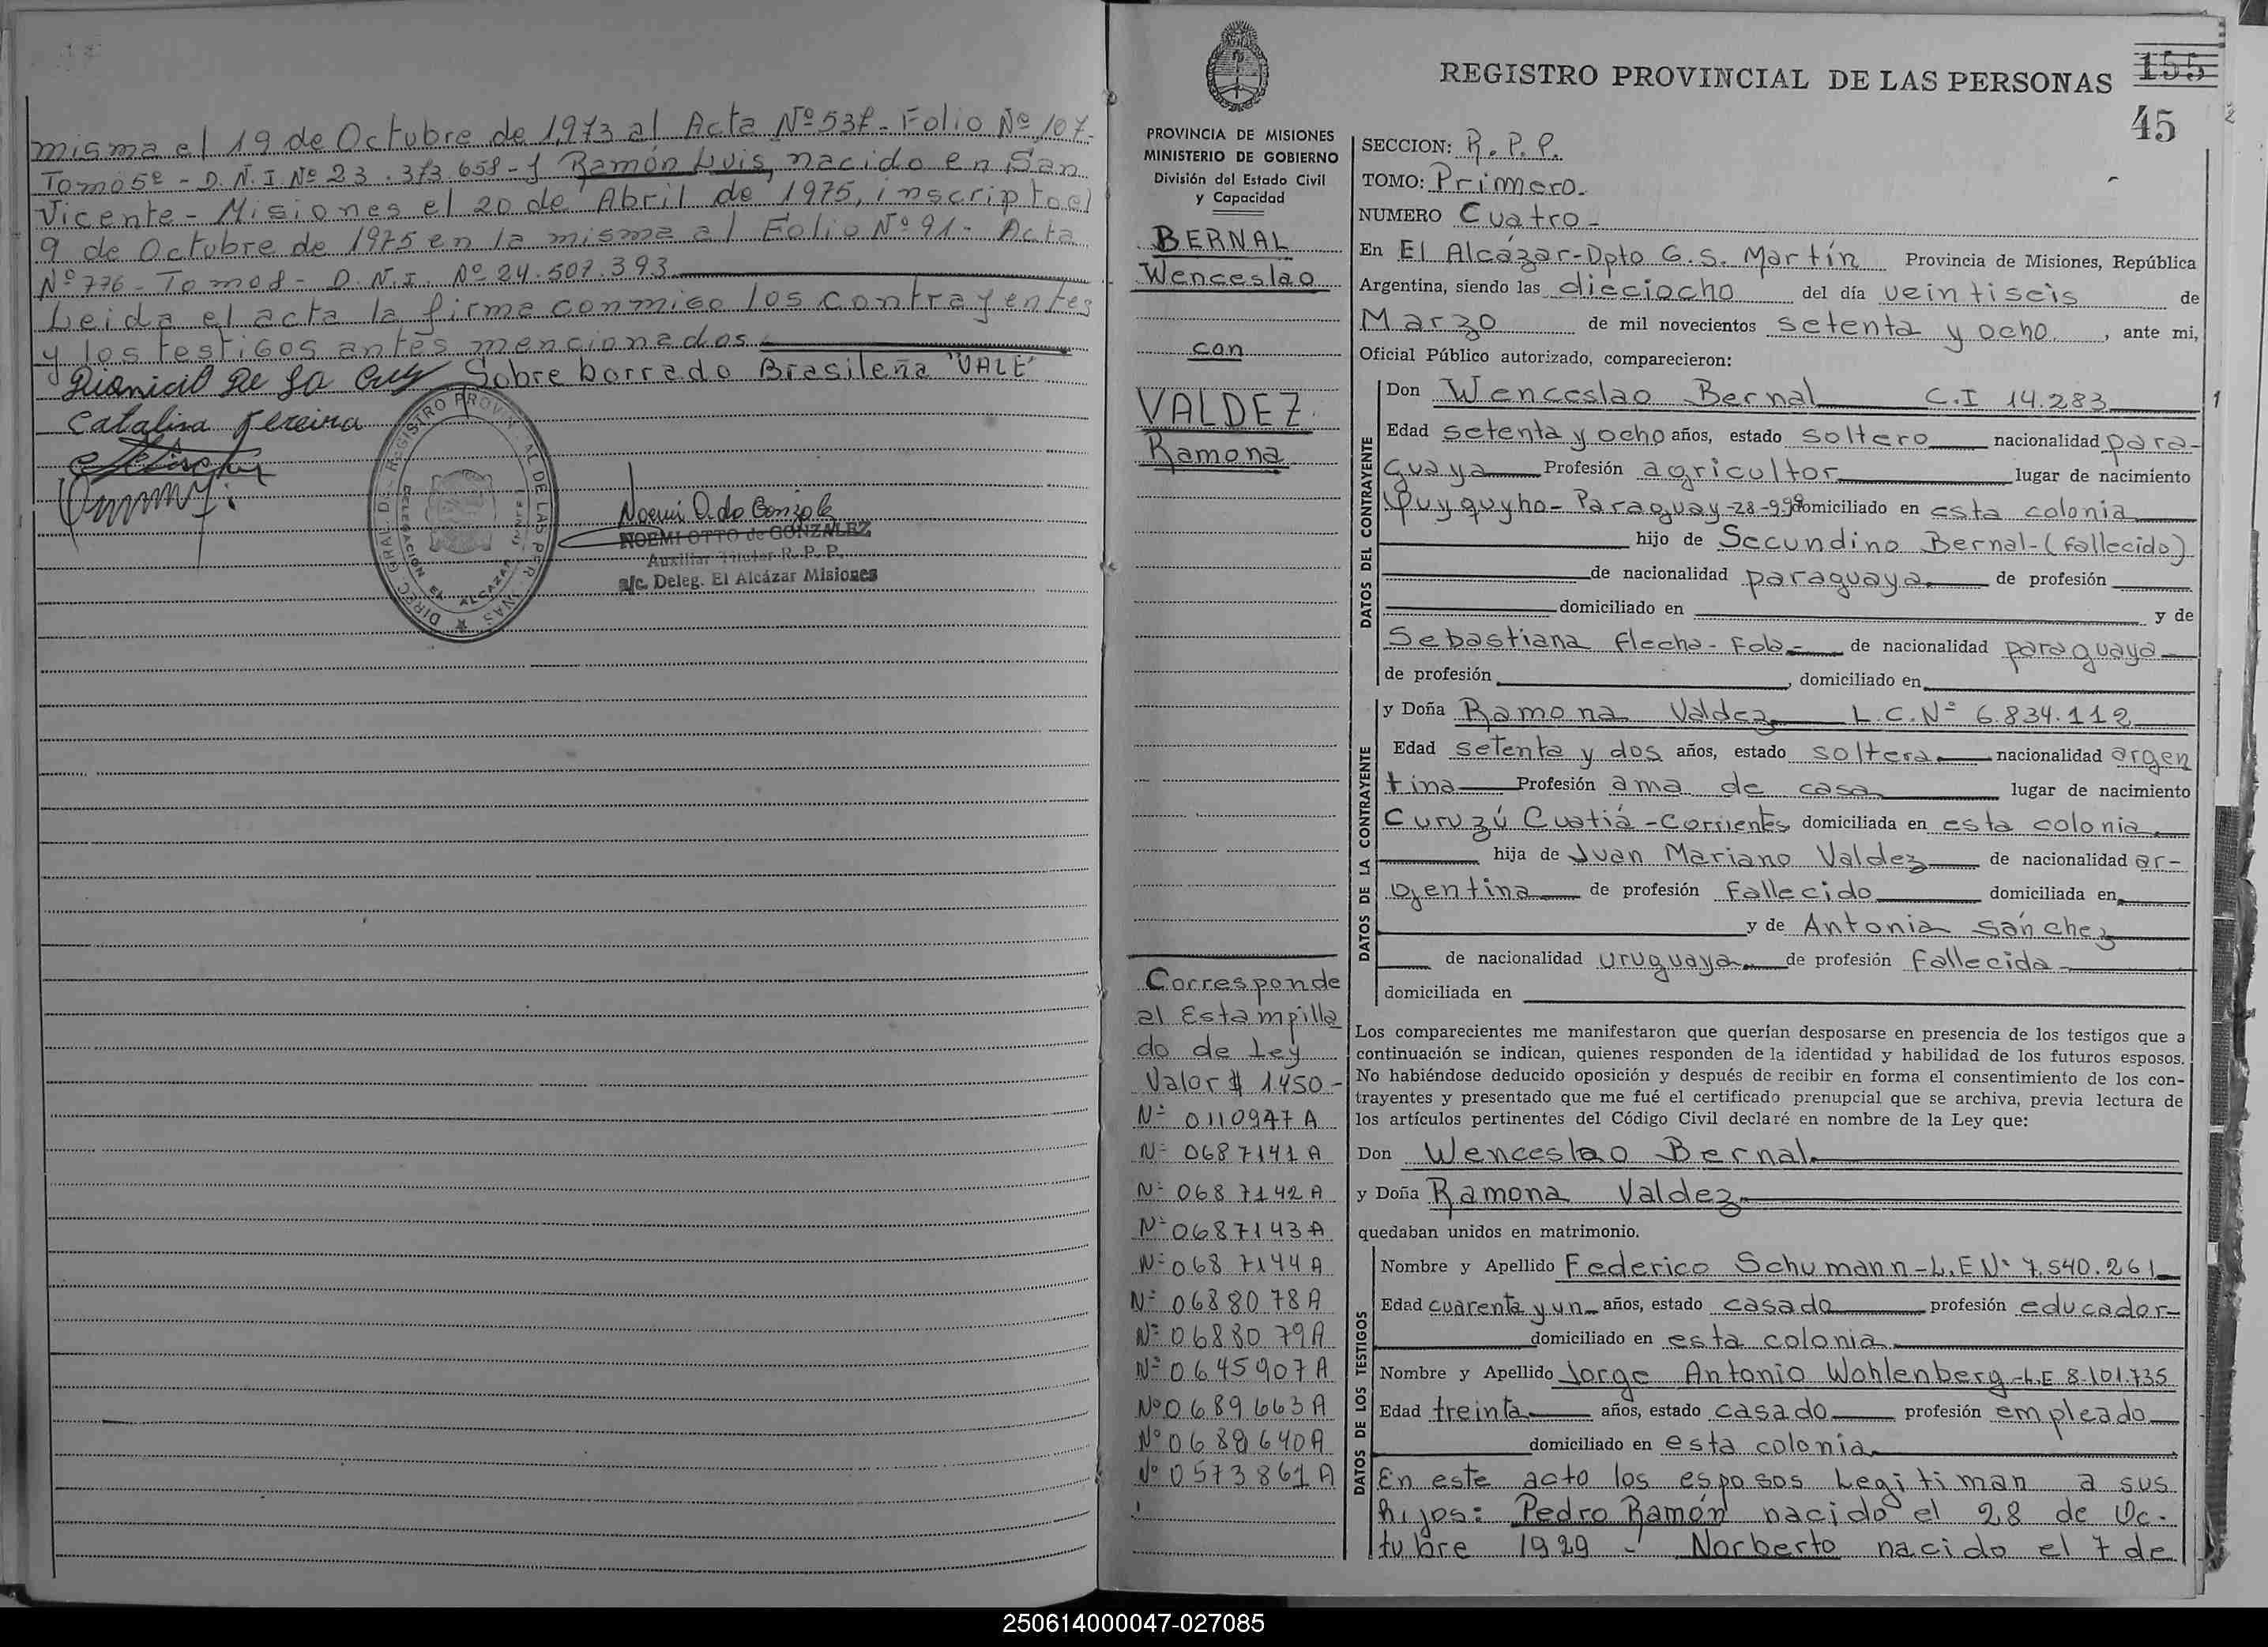 misma el 19 de Octubre de 1,973 al Acta Nº 537 - Folio Nº 107-
Tomo 5º - D.N.I. Nº 23.373.658 - y Ramón Luis, nacido en San
Vicente - Misiones el 20 de Abril de 1975, inscripto el
9 de Octubre de 1975 en la misma al Folio Nº 91 - Acta
Nº 776 - Tomo 8 - D.N.I. Nº 24.507.393
Leida el acta la firma conmigo los contrayentes
y los testigos antes mencionados.
de la Cruz Sobre borrado Brasileña "VALE"
Catalina Pereira
Noemi O. de Gonzalez
NOEMI OTTO de GONZALEZ
Auxiliar Titular R. P. P.
a/c. Deleg. El Alcázar Misiones
DELEGACION EL ALCAZAR
REGISTRO PROVINCIAL DE LAS PERSONAS
155
45
PROVINCIA DE MISIONES
MINISTERIO DE GOBIERNO
División del Estado Civil
y Capacidad
BERNAL
Wenceslao
con
VALDEZ
Ramona
Corresponde
al Estampilla
do de Ley
Valor $ 1.450.-
Nº 0110947 A
Nº 0687141 A
Nº 0687142 A
Nº 0687143 A
Nº 0687144 A
Nº 0688078 A
Nº 0688079 A
Nº 0645907 A
Nº 0689663 A
Nº 0573861 A
SECCION: R. P. P.
TOMO: Primero.
NUMERO Cuatro -
En El Alcázar - Dpto G. S. Martín Provincia de Misiones, República
Argentina, siendo las dieciocho del día veintiseis de
Marzo de mil novecientos setenta y ocho, ante mi,
Oficial Público autorizado, comparecieron:
DATOS DEL CONTRAYENTE
Don Wenceslao Bernal C.I 14.283
Edad setenta y ocho años, estado soltero nacionalidad para-
guaya Profesión agricultor lugar de nacimiento
Quyquyho - Paraguay - 28-9- domiciliado en esta colonia
hijo de Secundino Bernal - (fallecido)
de nacionalidad paraguaya de profesión
domiciliado en y de
Sebastiana Flecha - de nacionalidad paraguaya
de profesión , domiciliado en
DATOS DE LA CONTRAYENTE
y Doña Ramona Valdez L.C.Nº 6.834.112
Edad setenta y dos años, estado soltera nacionalidad argen
tina Profesión ama de casa lugar de nacimiento
Curuzú Cuatiá - Corrientes domiciliada en esta colonia
hija de Juan Mariano Valdez de nacionalidad ar-
gentina de profesión Fallecido domiciliada en
y de Antonia Sánchez
de nacionalidad uruguaya de profesión Fallecida -
domiciliada en
Los comparecientes me manifestaron que querían desposarse en presencia de los testigos que a
continuación se indican, quienes responden de la identidad y habilidad de los futuros esposos.
No habiéndose deducido oposición y después de recibir en forma el consentimiento de los con-
trayentes y presentado que me fué el certificado prenupcial que se archiva, previa lectura de
los artículos pertinentes del Código Civil declaré en nombre de la Ley que:
Don Wenceslao Bernal
y Doña Ramona Valdez
quedaban unidos en matrimonio.
DATOS DE LOS TESTIGOS
Nombre y Apellido Federico Schumann - L.E Nº 7.540.261
Edad cuarenta y un años, estado casado profesión educador-
domiciliado en esta colonia
Nombre y Apellido Jorge Antonio Wohlenberg - L.E 8.101.735
Edad treinta años, estado casado profesión empleado
domiciliado en esta colonia
En este acto los esposos Legitiman a sus
hijos: Pedro Ramón nacido el 28 de Oc-
tubre 1929 - Norberto nacido el 7 de
250614000047-027085